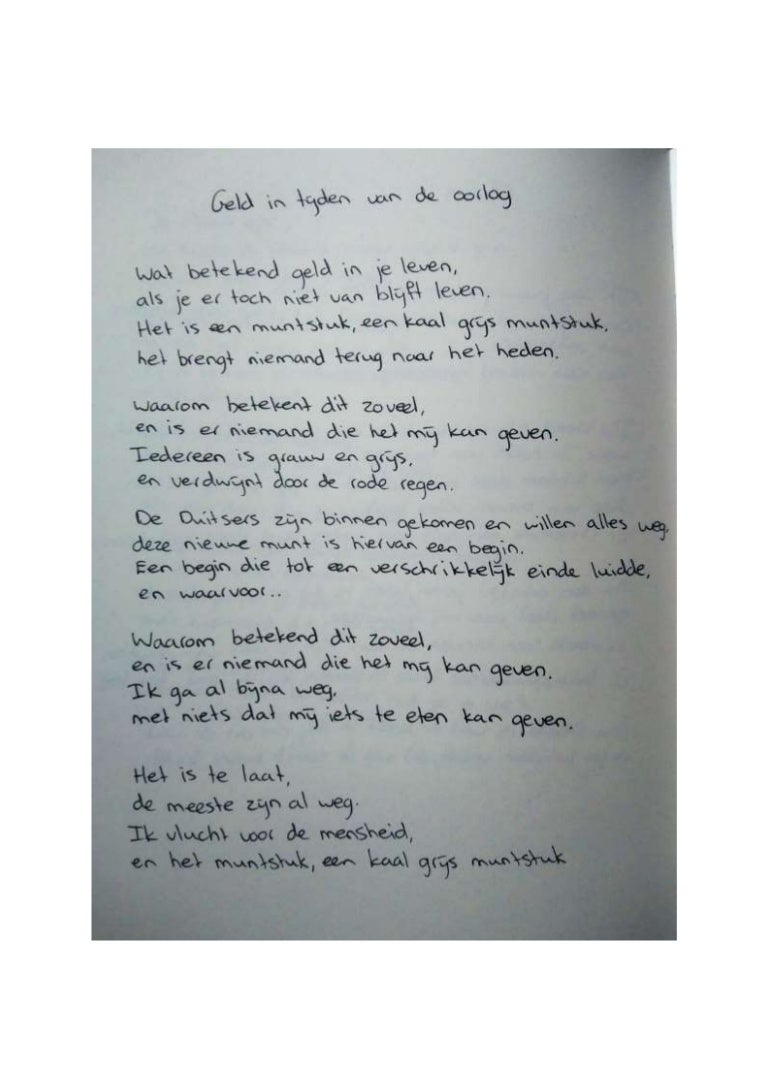 Geld in tijden van de oorlog
Wat betekend geld in je leven,
als je er toch niet van blijft leven.
Het is een muntstuk, een kaal grijs muntstuk,
het brengt niemand terug naar het heden.
Waarom betekent dit zoveel,
en is er niemand die het mij kan geven.
Iedereen is grauw en grijs,
en verdwijnt door de rode regen.
De Duitsers zijn binnen gekomen en willen alles weg,
deze nieuwe munt is hiervan een begin.
Een begin die tot een verschrikkelijk einde luidde,
en waarvoor..
Waarom betekend dit zoveel,
en is er niemand die het mij kan geven.
Ik ga al bijna weg,
met niets dat mij iets te eten kan geven.
Het is te laat,
de meeste zijn al weg.
Ik vlucht voor de mensheid,
en het muntstuk, een kaal grijs muntstuk